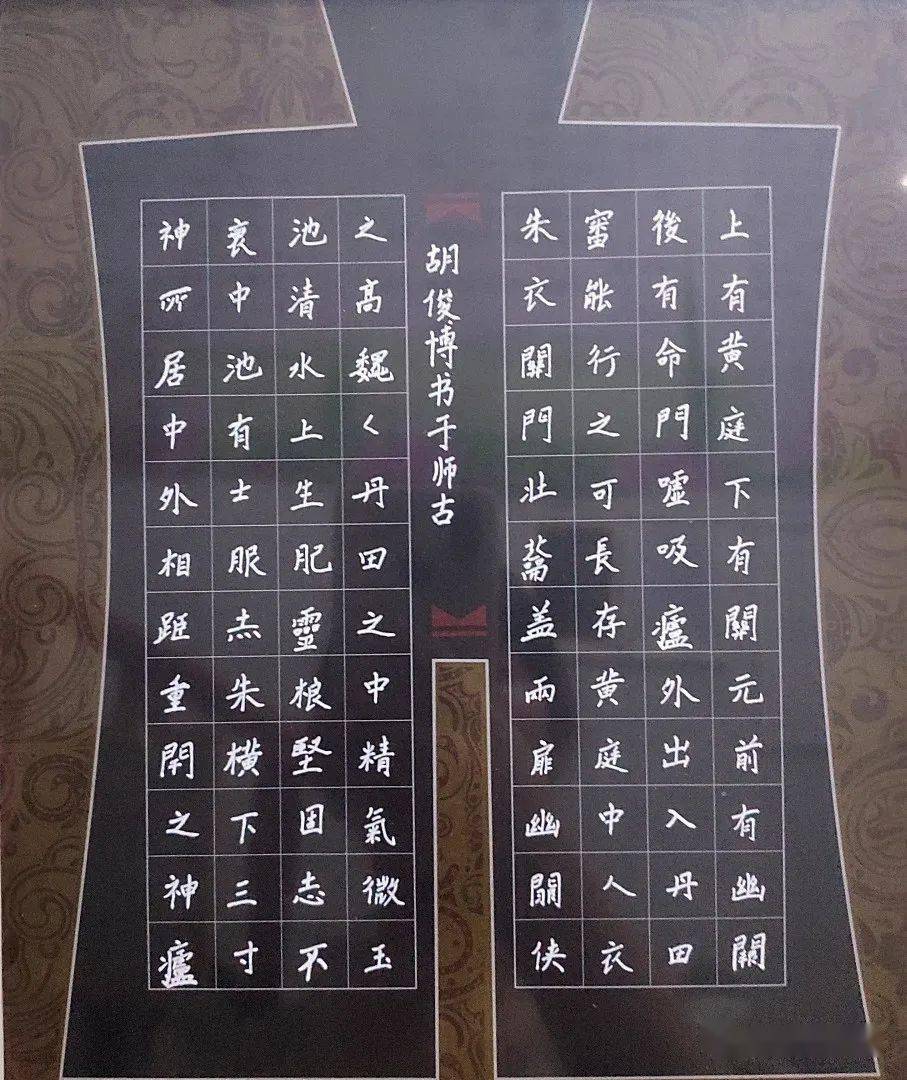 上有黄庭下有關元前有幽闕
後有命門嘘吸廬外出入丹田
審能行之可長存黄庭中人衣
朱衣關門壮蘥盖兩扉幽關侠
胡俊博书于师古
之高巍々丹田之中精氣微玉
池清水上生肥靈根堅固志不
衰中池有士服赤朱横下三寸
神所居中外相距重閇之神廬